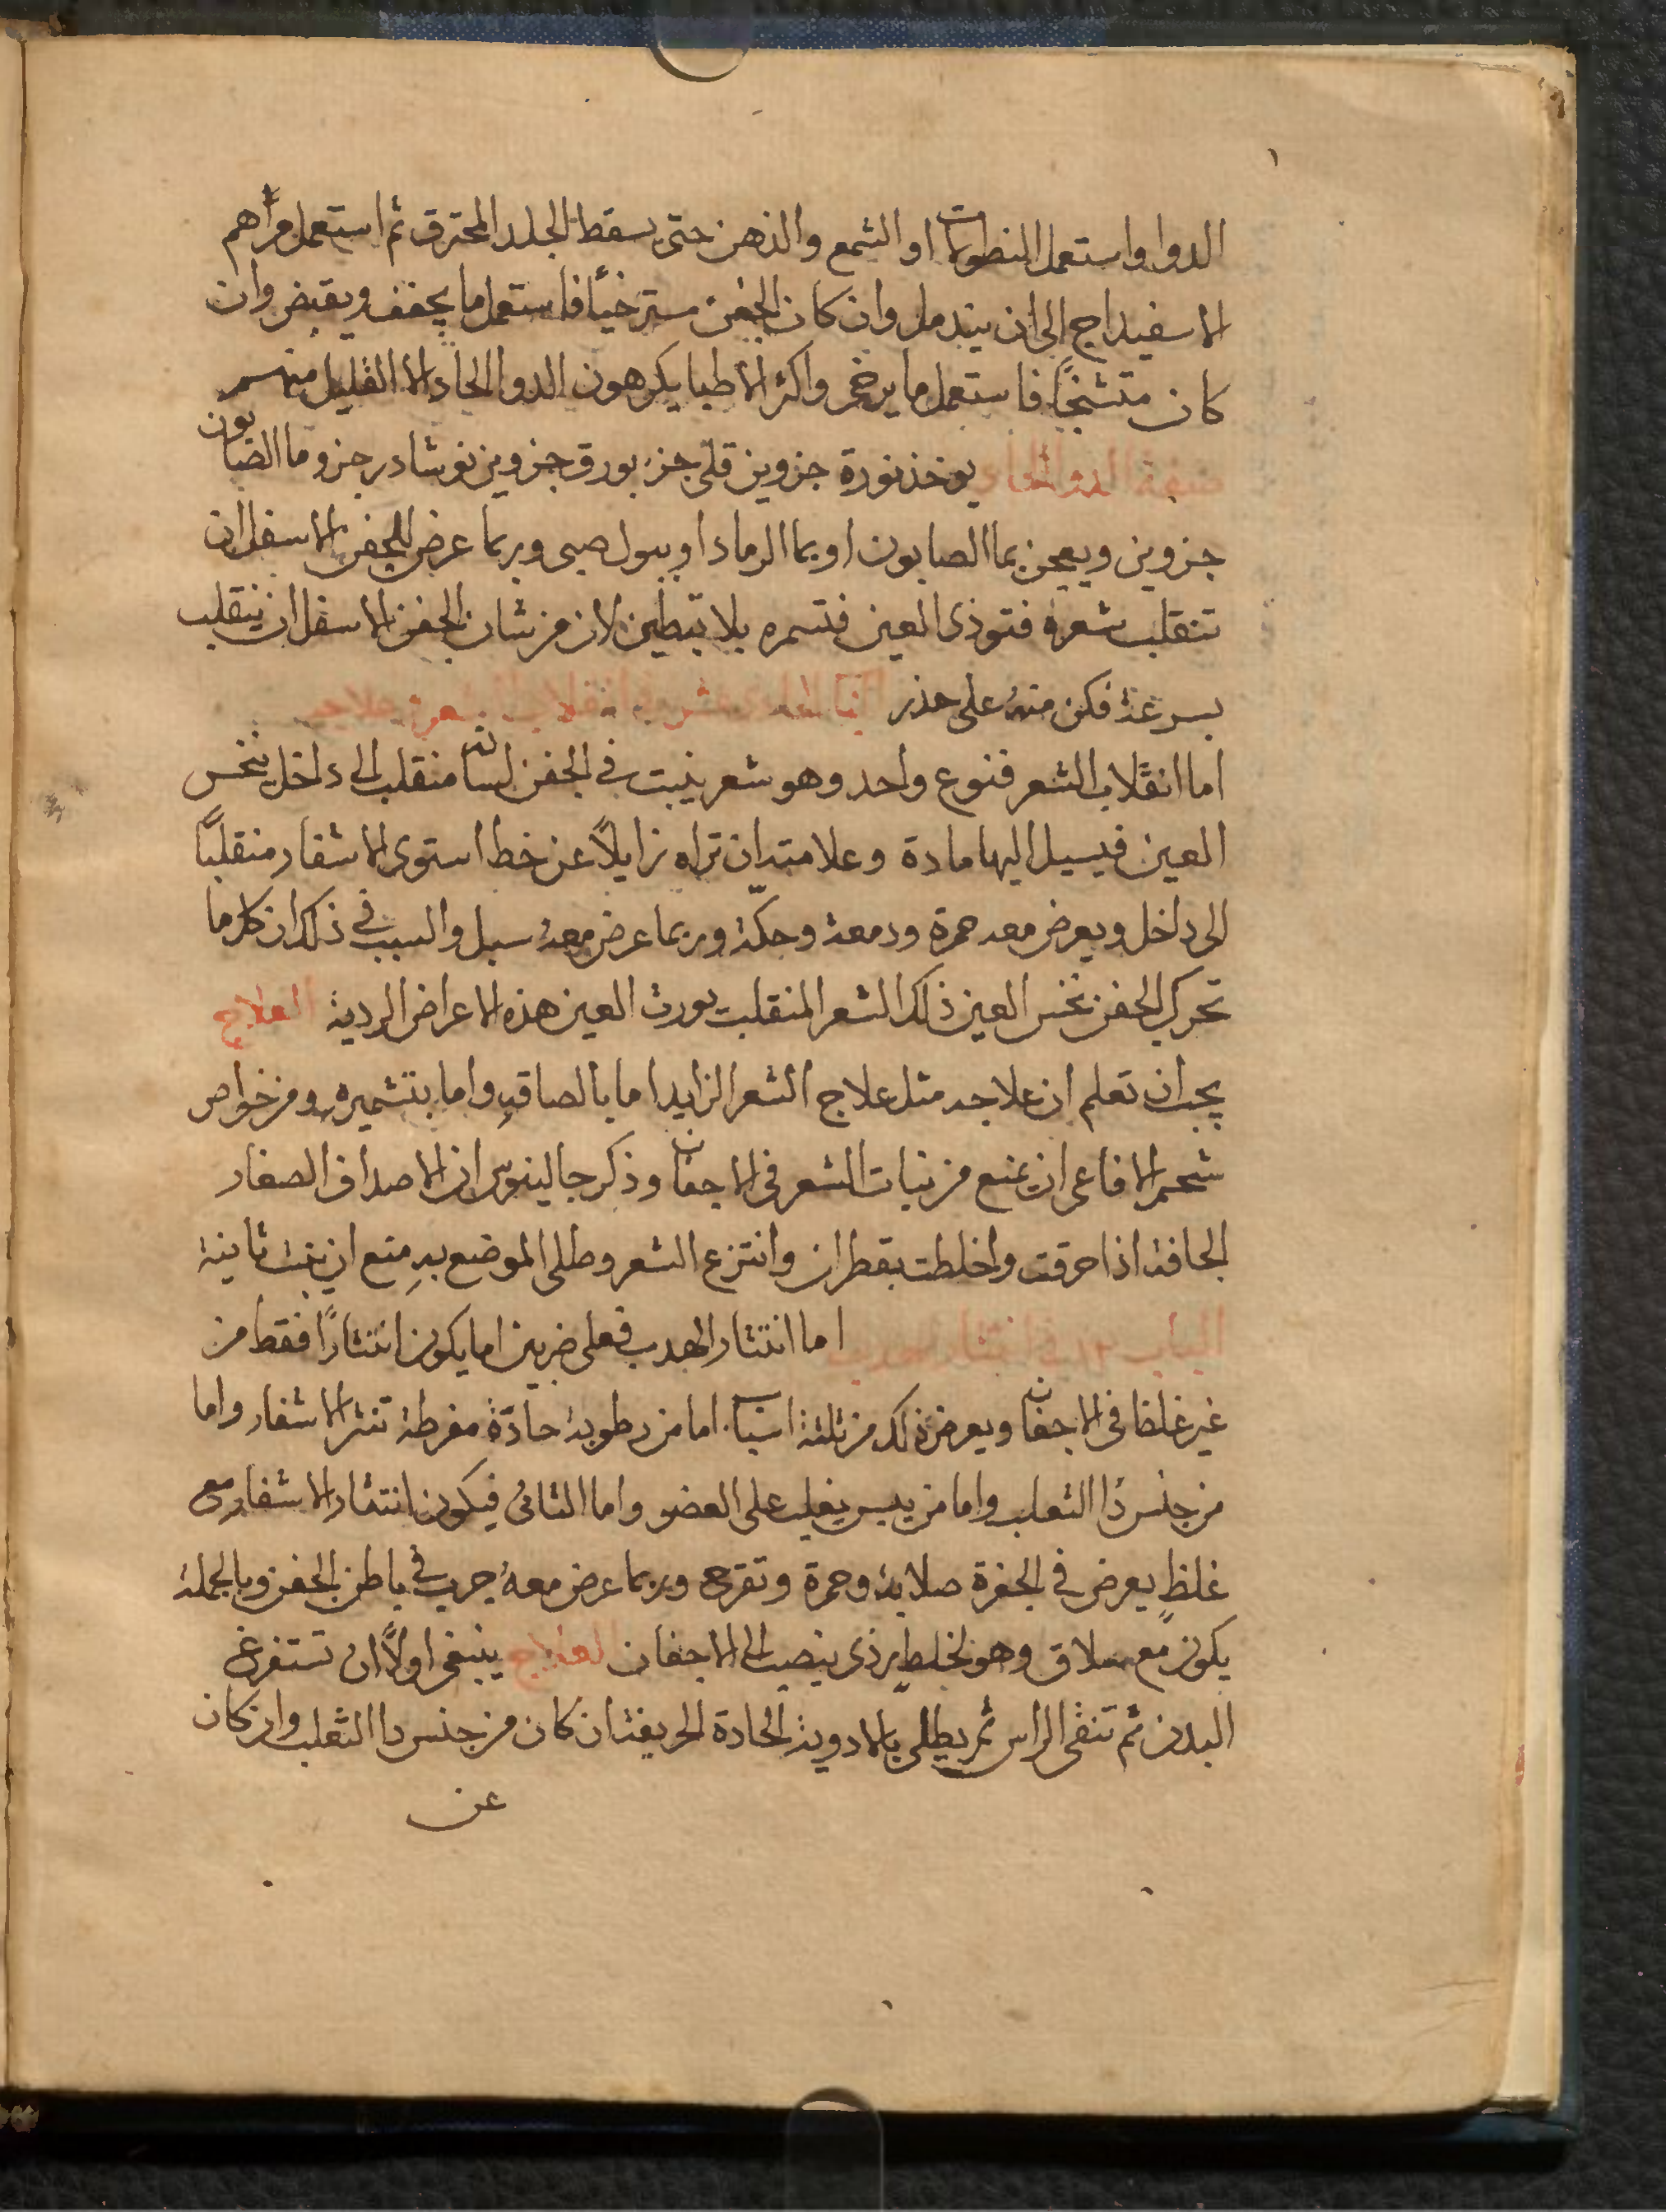 الدوا واستعمل النطولات او الشمع والدهن حتى يسقط الجلد المحترق ثم استعمل مراهم
الاسفيداج الى ان يندمل وان كان الجفن مسترخيًا فاستعمل ما يجفف ويقبض وان
كان متشنجًا فاستعمل ما يرخى واكثر الاطبا يكرهون الدوا الحاد الا القليل منهم
صفة الدوا الحاد يوخذ نورة جزوين قلى جز بورق جزوين نوشادر جزو ما الصابون
جزوين ويعجن بما الصابون او بما الرماد او ببول صبى وربما عرض للجفن الاسفل ان
تنقلب شعره فتوذى العين فتسمره بلا تبطين لان من شان الجفن الاسفل ان ينقلب
بسرعة فكن منه على حذر الباب الحادى عشر فى انقلاب الشعر وعلاجه
اما انقلاب الشعر فنوع واحد وهو شعر ينبت فى الجفن لسانه منقلب الى داخل ينخس
العين فيسيل اليها مادة وعلامته ان تراه زايلًا عن خط استوى الاشفار منقلبًا
الى داخل ويعرض معه حمرة ودمعة وحكّة وربما عرض معه سبل والسبب فى ذلك ان كل ما
تحرك الجفن نخس العين ذلك الشعر المنقلب يورث العين هذه الاعراض الردية العلاج
يجب ان تعلم ان علاجه مثل علاج الشعر الزايد اما بالصاقه واما بتشميره ومن خواص
شحم الافاعى ان يمنع من نبات الشعر فى الاجفان وذكر جالينوس ان الاصداف الصغار
الجافة اذا حرقت واخلطت بقطران وانتزع الشعر وطلى الموضع به منع ان ينبت ثانية
الباب ١٢ فى انتثار الهدب اما انتثار الهدب فعلى ضربين اما يكون انتثارًا فقط من
غير غلظ فى الاجفان ويعرض ذلك من ثلثة اسباب اما من رطوبة حادّة مفرطة تنثر الاشفار واما
من جنس دا الثعلب واما من يبس يغلب على العضو واما الثانى فيكون انتثار الاشفار مع
غلظٍ يعرض فى الجفرة صلابة وحمرة وتقرح وربما عرض معه جرب فى باطن الجفن وبالجملة
يكون مع سلاق وهو لخلطٍ رذى ينصب الى الاجفان العلاج ينبغى اولًا ان تستفرغ
البدن ثم تنقى الراس ثم يطلى بالادوية الحادة الحريفة ان كان من جنس دا الثعلب وان كان
عن